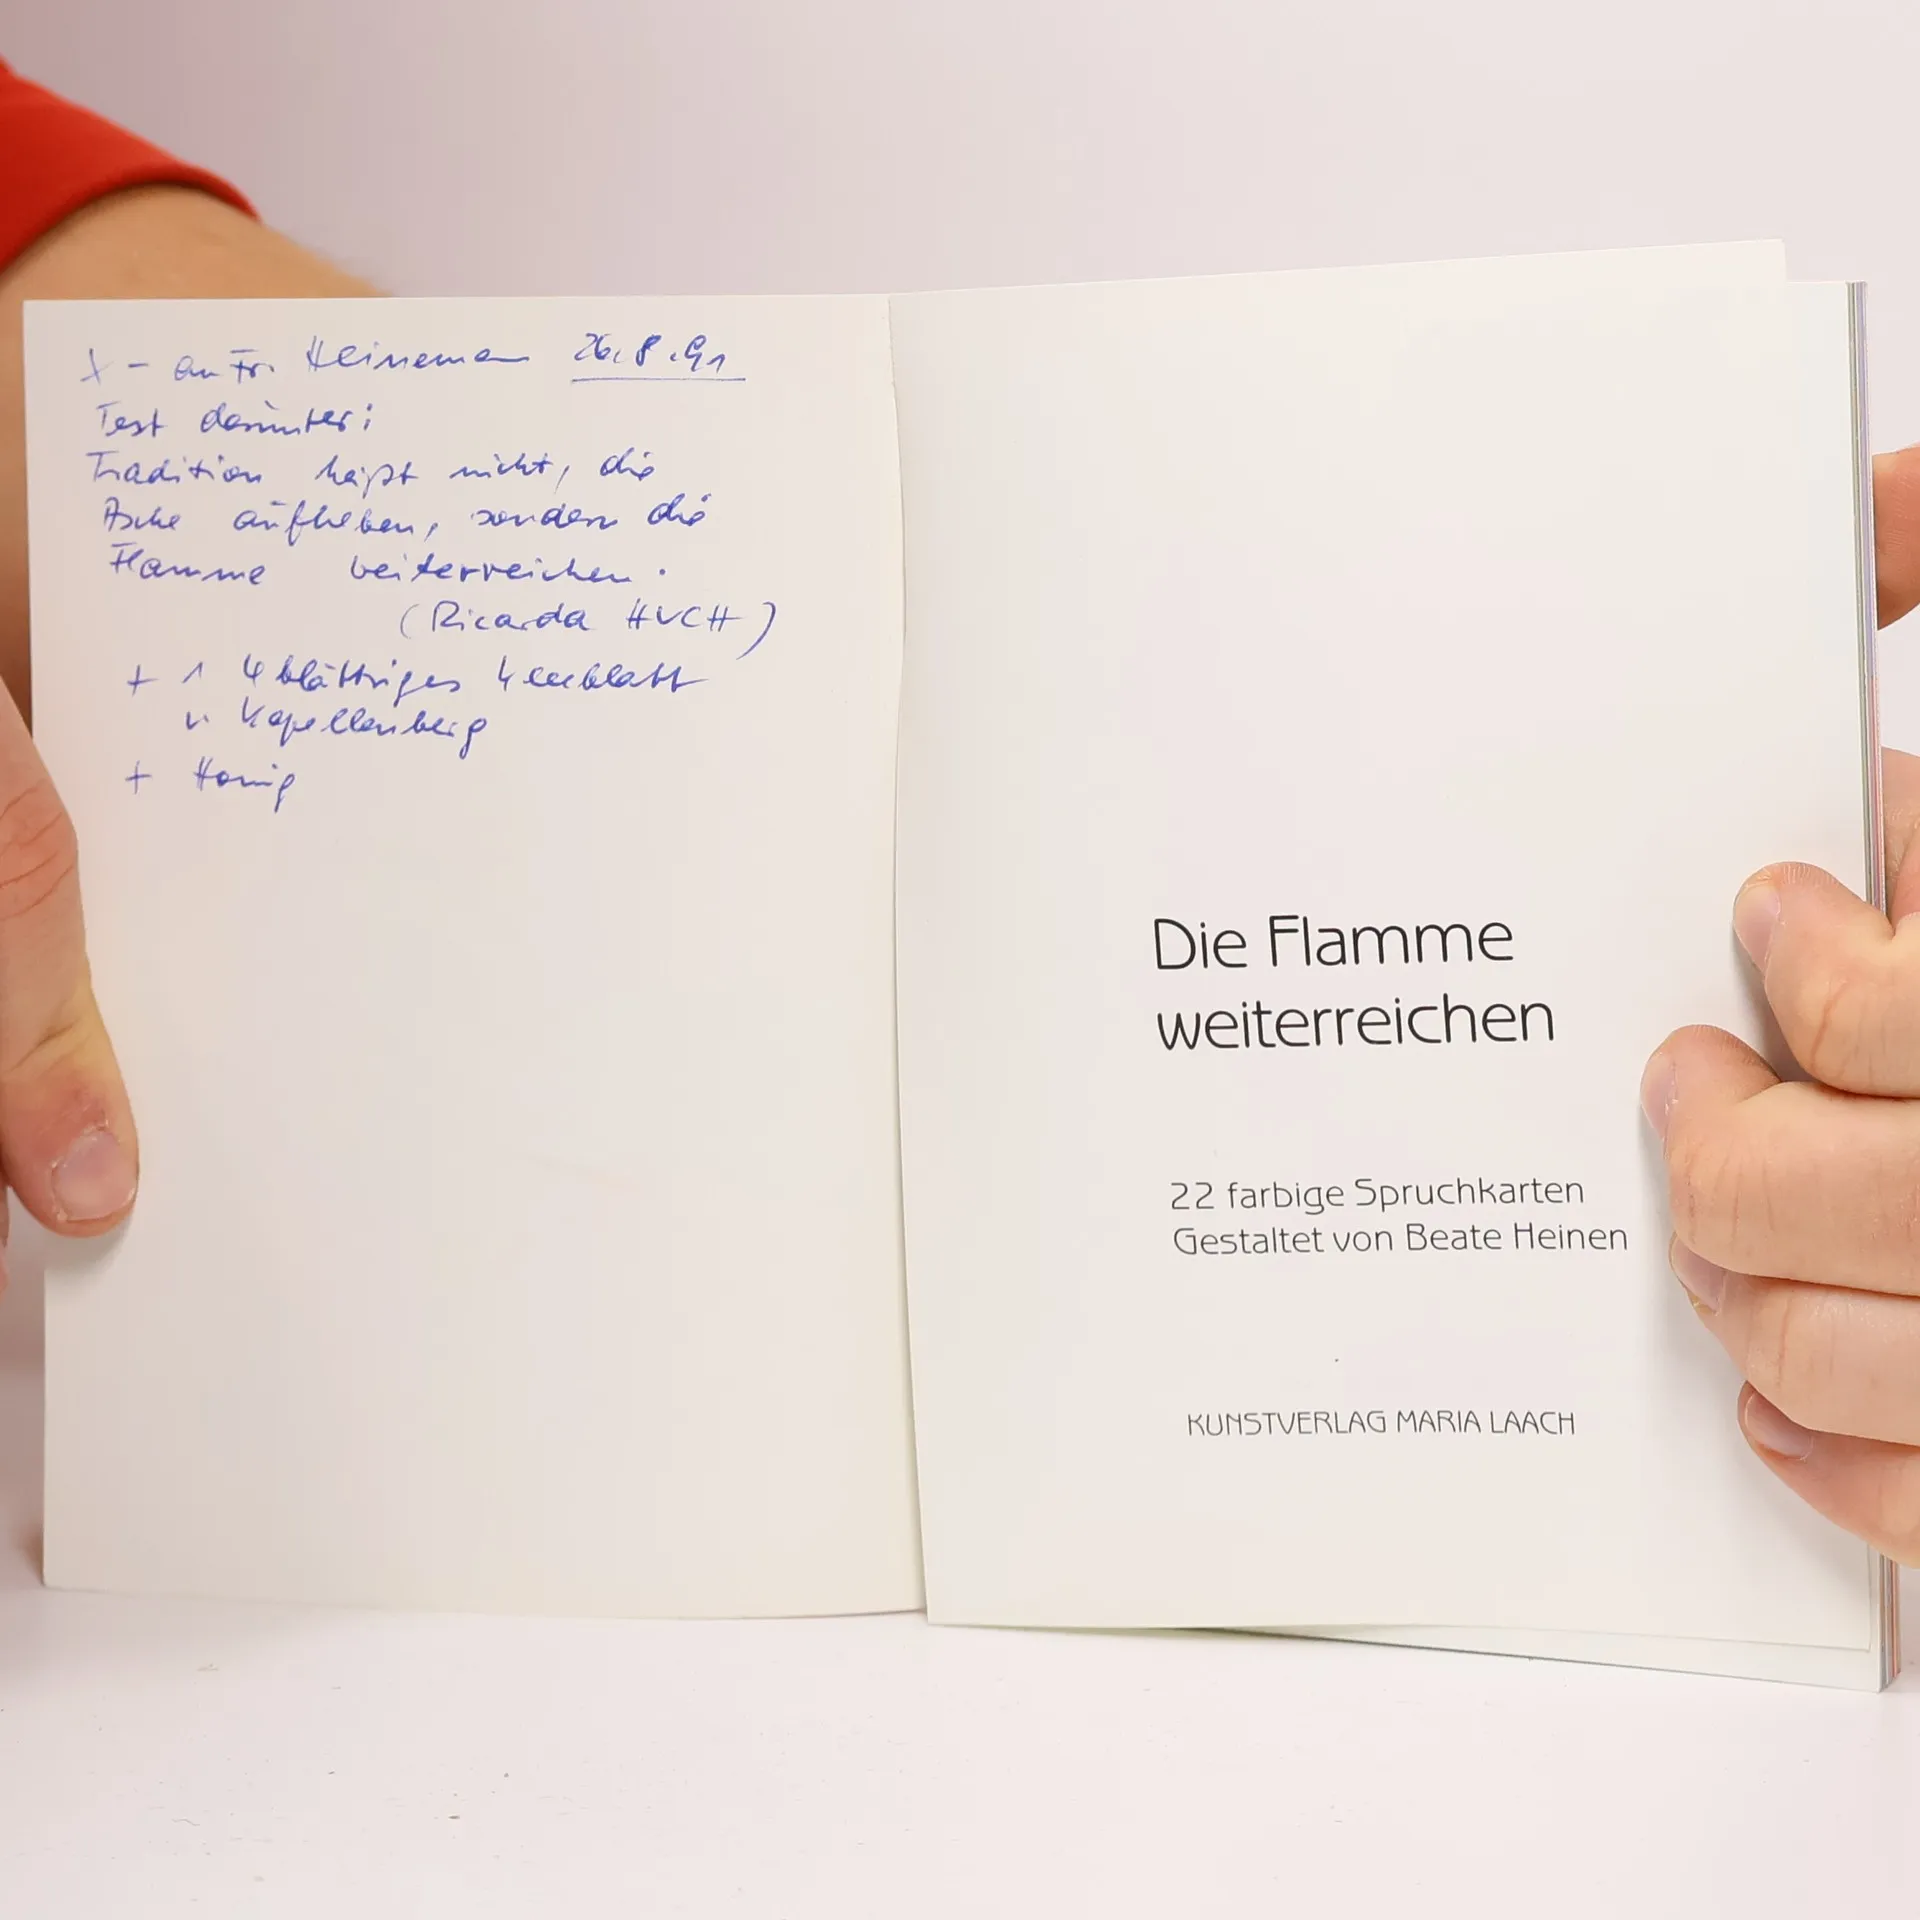 X - an Fr. Heineman 26.8.91
Text darunter:
Tradition heißt nicht, die
Asche aufheben, sondern die
Flamme weiterreichen.
(Ricarda HUCH)
+ 1 4blättriges Kleeblatt
v. Kapellenberg
+ Honig
Die Flamme
weiterreichen
22 farbige Spruchkarten
Gestaltet von Beate Heinen
KUNSTVERLAG MARIA LAACH